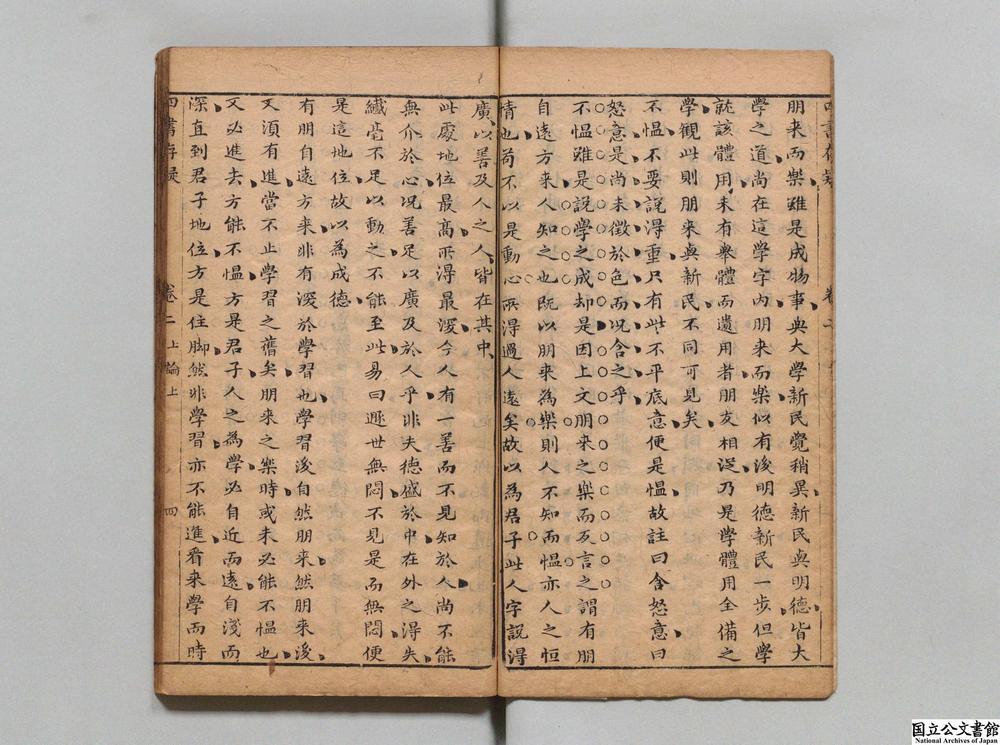 朋来而樂雖是成物事與大學新民覺稍異新民與明德皆大
學之道尚在這學字內朋来而樂似有後明德新民一步但學
訛該體用未有舉體而遺用者朋友相從乃是學體用全備之
學觀此則朋来與新民不同可見矣
不慍不要說得重只有些不平底意便是慍故註曰含怒意曰
怒意是尚未徵於色而况含之乎
不慍雖是說學之成却是因上文朋来之樂而反言之謂有朋
自遠方来人知之也既以朋来為樂則人不知而慍亦人之恒
情也苟不以是動心所得過人遠矣故以為君子此人字說得
廣以善及人之人皆在其中
此處地位最高所得最深今人有一善而不見知於人尚不能
無介於心况善足以廣及於人乎非夫德盛於中在外之得失
纖毫不足以動之不能至此易曰遯世無悶不見是而無悶便
是這地位故以為成德
有朋自遠方来非有深於學習也學習後自然朋来然朋来後
又須有進當不止學習之舊矣朋来之樂時或未必能不慍也
又必進去方能不慍方是君子人之為學必自近而遠自淺而
深直到君子地位方是住脚然非學習亦不能進看来學而時
四書存疑 卷二 上論上 四
国立公文書館
National Archives of Japan